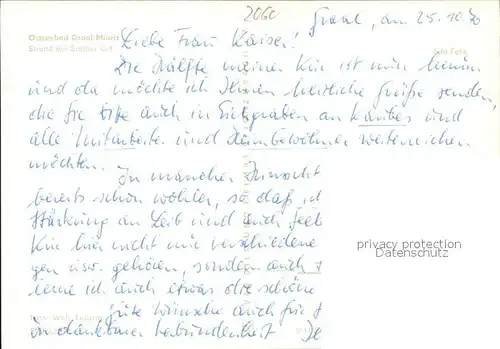 2060
Graal, am 25.10.70
Ostseebad Graal-Müritz
Liebe Frau Kaiser!
Foto
Die Hälfte meiner Kur ist nun herum
und da möchte ich Ihnen herzliche Grüße senden,
die Sie bitte auch in Eichgraben an und
alle Mitarbeiter und Heimbewohner weiterreichen
möchten.
In mancher Hinsicht
bereits schon wohler, so daß ich
Stärkung an Leib und auch Seele
Kur hier nicht nur verschiedene
gen usw. gehören, sondern auch
lerne ich auch etwas die schöne
gute Wünsche auch für
In dankbarer Verbundenheit
privacy protection
Datenschutz